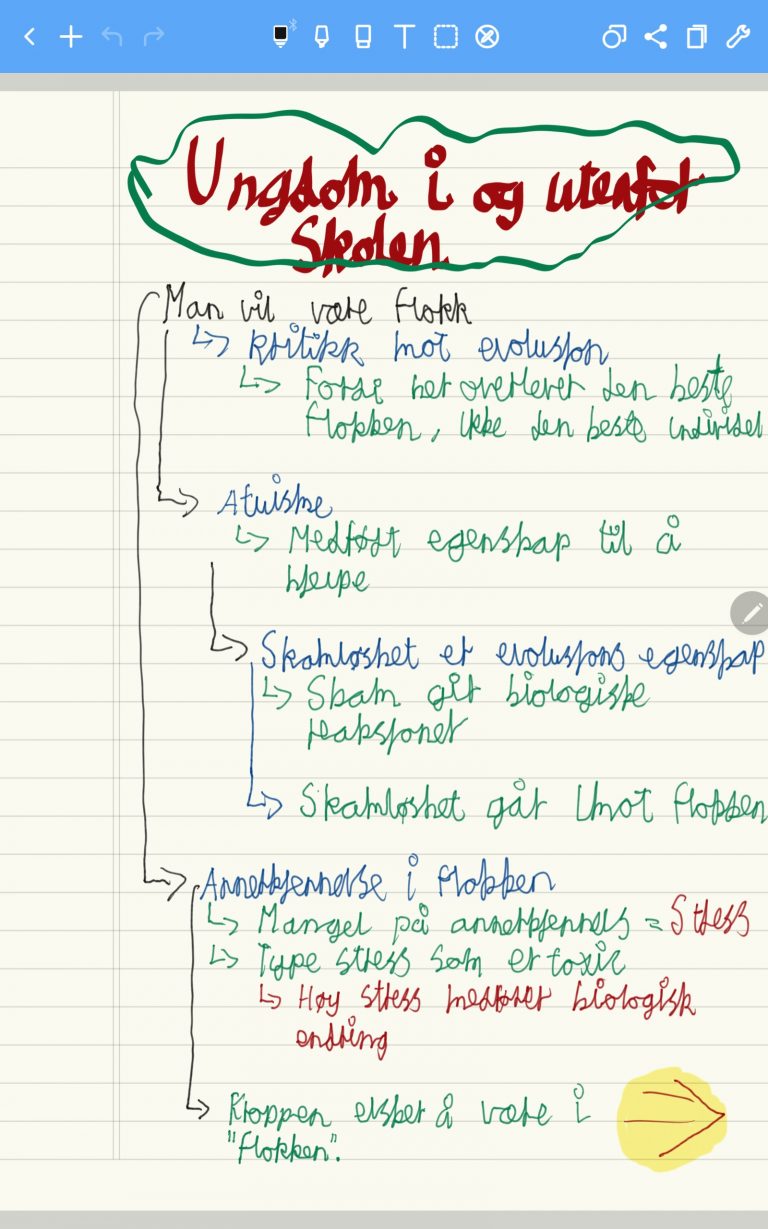 Ungdom i og utenfor
Skolen
Man vil være flokk
Kritikk mot evolusjon
Forsk her overlever den beste
flokken, ikke den beste individet
Atuisme
Medfødt egenskap til å
hjelpe
Skamløshet er evolusjons egenskap
Skam gir biologiske
reaksjoner
Skamløshet går imot flokken
Annerkjennelse i flokken
Mangel på annerkjennels = Stress
Type stress som er toxic
Høy stress medfører biologisk
endring
Kroppen elsker å være i
"flokken".